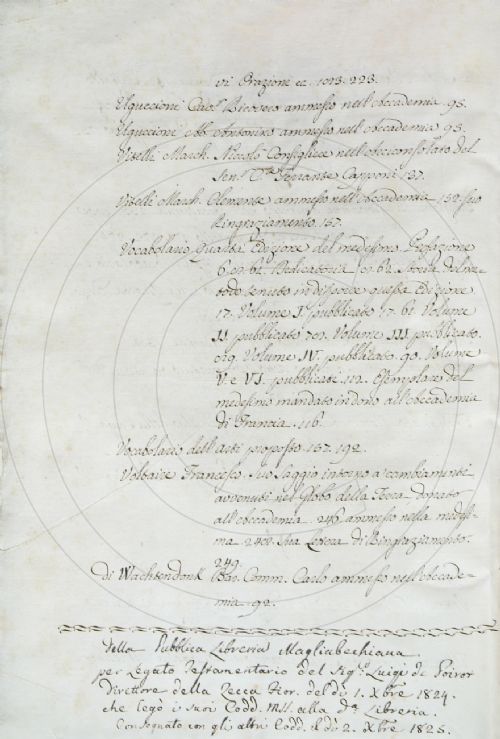 vi Orazione ec. 1013. 223.
Uguccioni Cav. Bicocco ammesso nell'Accademia. 95.
Uguccioni Ab. Antonino ammesso nell'Accademia 95.
Vitelli March. Niccolò Consigliere nell'Arciconsolato del
Sen. Ferrante Capponi 137.
Vitelli March. Clemente ammesso nell'Accademia 152. suo
Ringraziamento. 157.
Vocabolario Quarta Edizione del medesimo. Prefazione
6. en. 62. Dedicatoria en. 62. Storia del me-
todo tenuto in distendere questa Edizione
17. Volume I. pubblicato 17. 61. Volume
II. pubblicato 70. Volume III pubblicato.
Volume IV. pubblicato. 90. Volume
V. e VI. pubblicati. 112. Esemplare del
medesimo mandato in dono all'Accademia
di Francia. 116.
Vocabolario dell'Arti proposto. 157. 192.
Voltaire Francesco. Suo Saggio intorno a' cambiamenti
avvenuti nel Globo della Terra donato
all'Accademia. 246 ammesso nella medesi-
ma 248. Sua Lettera di Ringraziamento.
249.
di Wachtendonk Bar. Comm. Carlo ammesso nell'Accade-
mia. 92.
Della Pubblica Libreria Magliabechiana
per Legato Testamentario del Sig. Luigi de Poirot
Direttore della Zecca Fior. del dì 1. Xbre 1824.
che legò i suoi Codd. MSS. alla da. Libreria.
Consegnato con gli altri Codd. il dì 2. Xbre 1825.